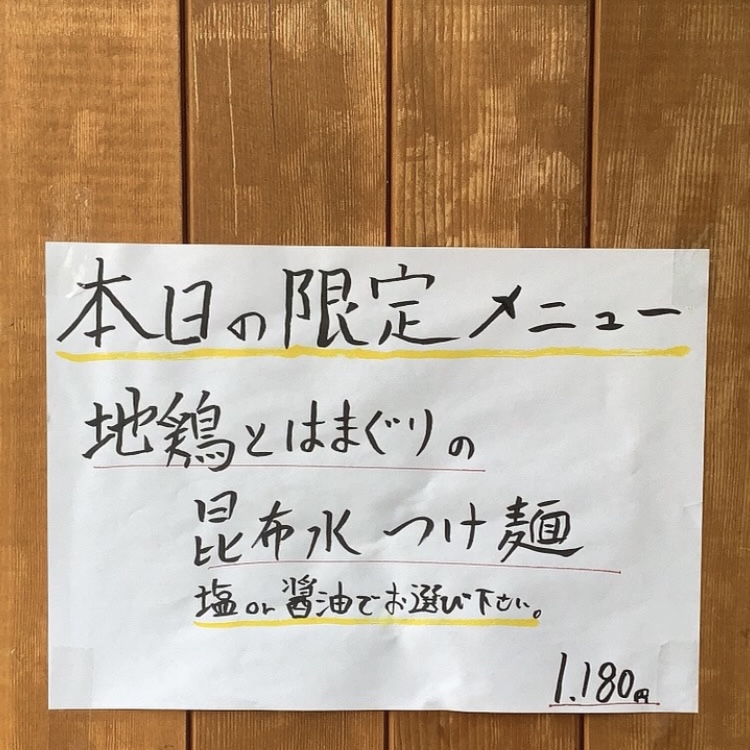 本日の限定メニュー
地鶏とはまぐりの
昆布水つけ麺
塩or醤油でお選び下さい。
1.180円